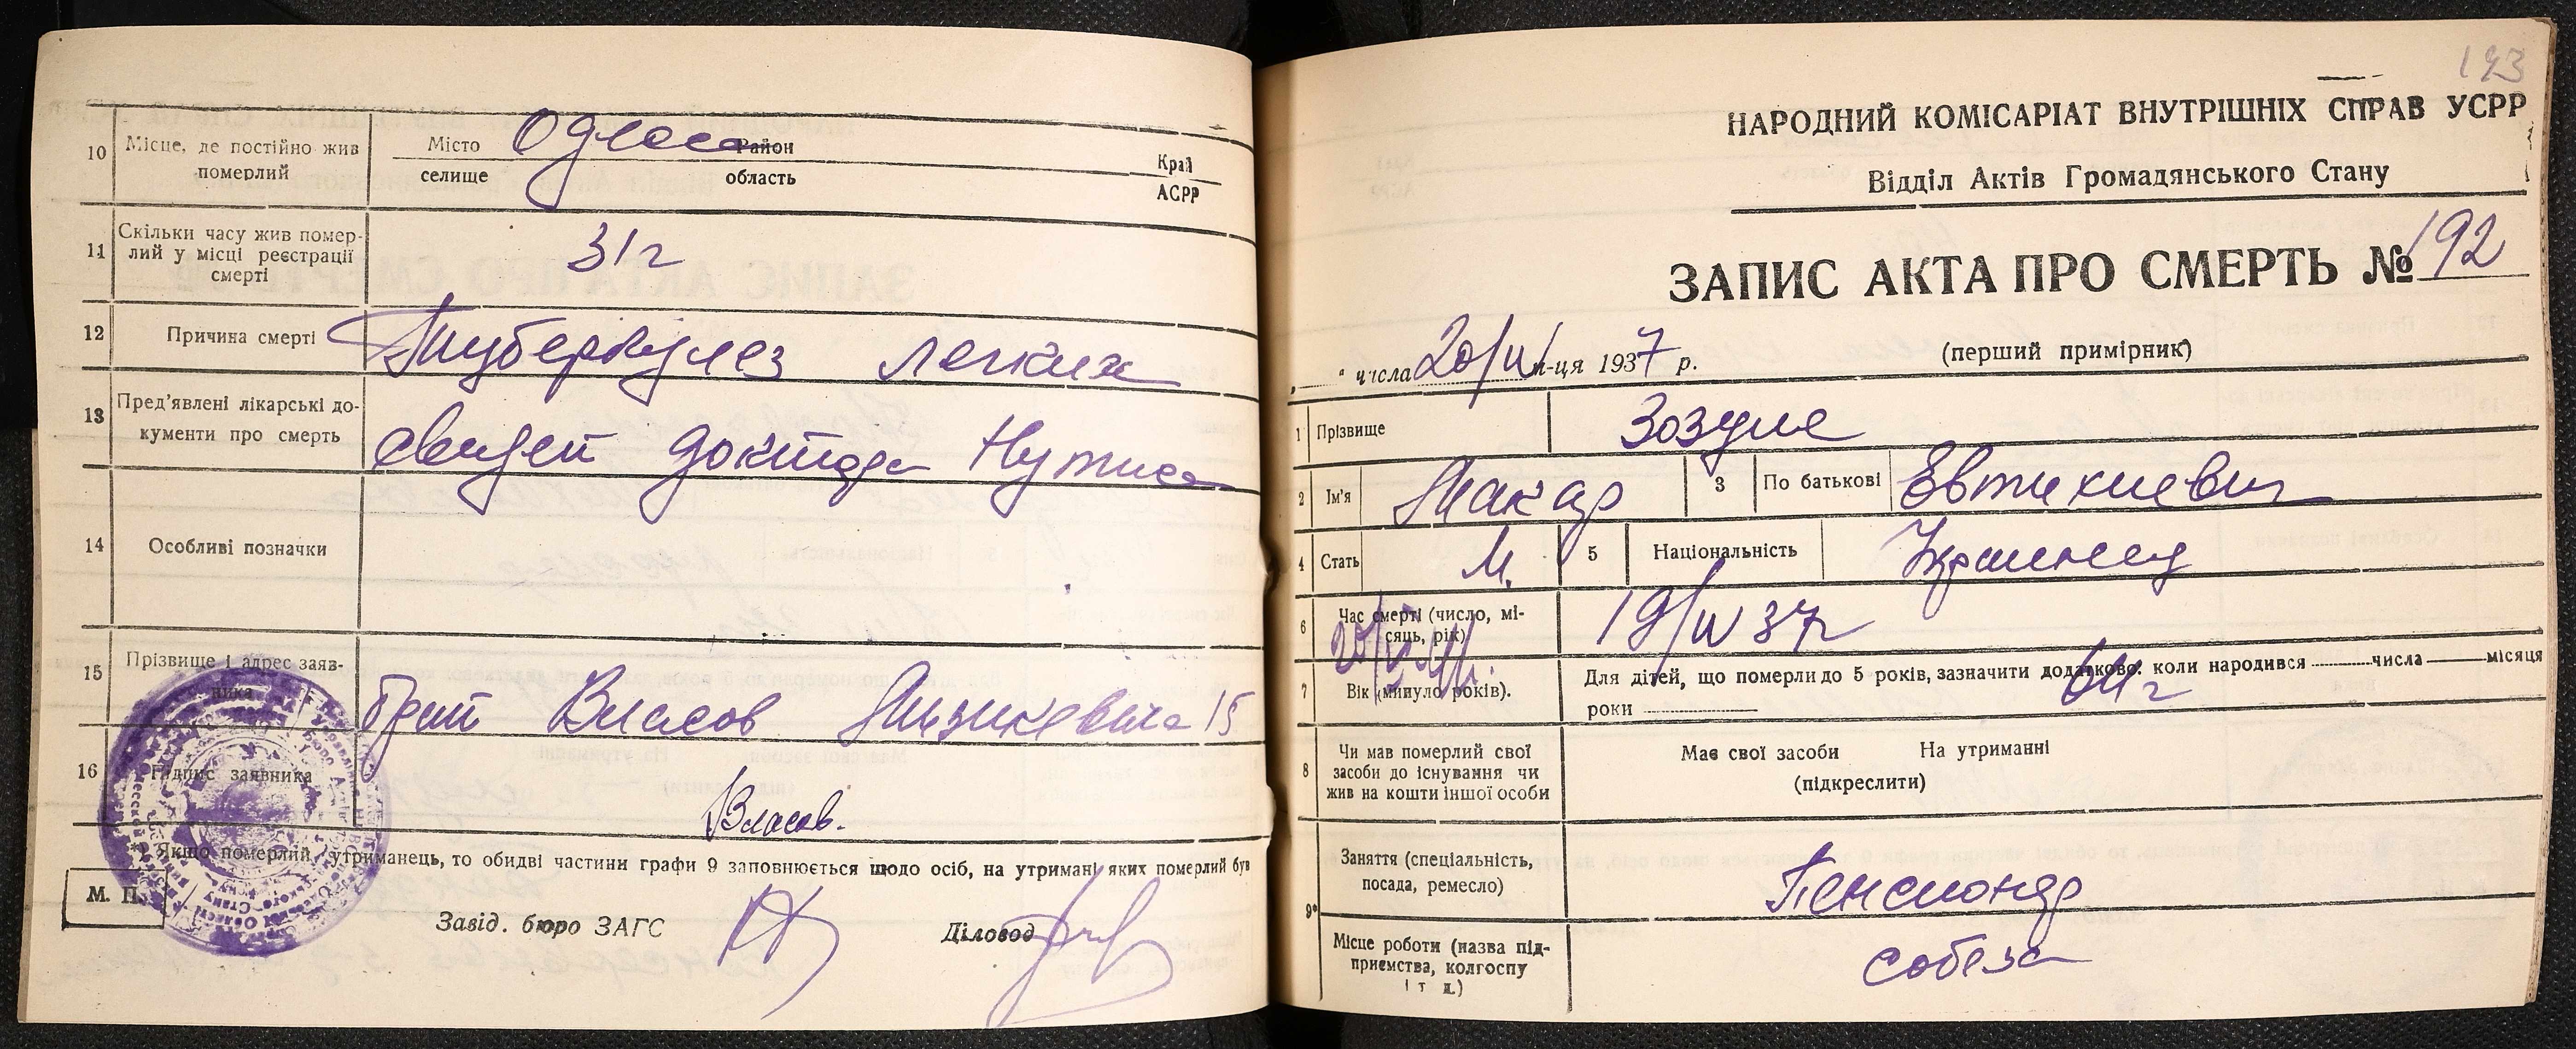 10 Місце, де постійно жив померлий
Місто Одесса Район Край
селище область АСРР
11 Скільки часу жив помер-
лий у місці реєстрації
смерті
31 г
12 Причина смерті Туберкулез легких
13 Пред'явлені лікарські до-
кументи про смерть
свидет доктора
14 Особливі позначки
15 Прізвище і адрес заяв-
ника
брат Власов 15
16 Підпис заявника
Власов.
*) Якщо померлий утриманець, то обидві частини графи 9 заповнюється щодо осіб, на утримані яких померлий був
М. П.
Завід. бюро ЗАГС Діловод
193
НАРОДНИЙ КОМІСАРІАТ ВНУТРІШНІХ СПРАВ УСРР
Відділ Актів Громадянського Стану
ЗАПИС АКТА ПРО СМЕРТЬ № 192
" числа 20/IV м-ця 1937 р. (перший примірник)
1 Прізвище Зоздуле
2 Ім'я Макар 3 По батькові Евтихиевич
4 Стать М. 5 Національність Украинец
6 Час смерті (число, мі-
сяць, рік)
19/IV 37 г
7 Вік (минуло років).
Для дітей, що померли до 5 років, зазначити додатково: коли народився числа місяця
роки
64 г
8 Чи мав померлий свої
засоби до існування чи
жив на кошти іншої особи
Має свої засоби На утриманні
(підкреслити)
9* Заняття (спеціальність,
посада, ремесло)
Пенсионер
Місце роботи (назва під-
приємства, колгоспу
і т д.)
собеза